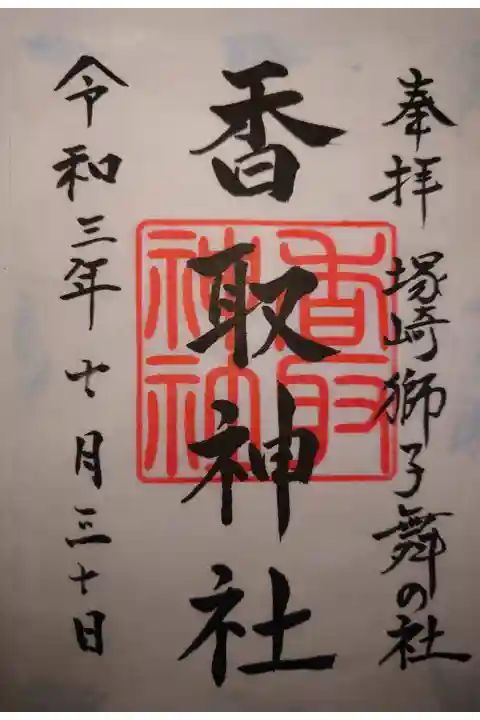 奉拝 塚崎獅子舞の社
香取神社
香取神社
令和三年十月三十日